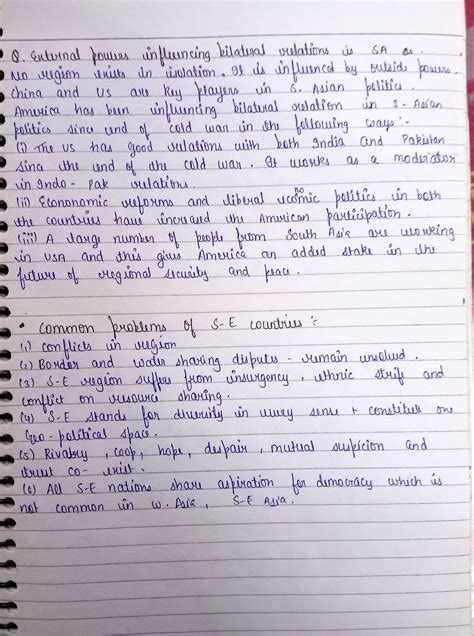 Q. External powers influencing bilateral relations is SA as.
No region exists in isolation. It is influenced by outside powers.
China and US are key players in S. Asian politics.
America has been influencing bilateral relation in S-Asian
politics since end of cold war in the following ways :-
(i) The US has good relations with both India and Pakistan
sing the end of the cold war. It works as a moderator
in Indo-Pak relations.
(ii) Econonomic reforms and liberal politics in both
the countries have increard the American participation.
(iii) A large number of people from South Asia are working
in USA and this gives America an added stake in the
future of regional security and peace.
• Common problems of S-E countries :-
(1) conflicts in region
(2) Border and water sharing disputes - remain unsolved.
(3) S-E region suffers from insurgency, ethnic strife and
conflict on resource sharing.
(4) S-E stands for diversity in every sense + constitute one
Geo-political space.
(5) Rivalry, coop, hope, despair, mutual suspicion and
trust co-exist.
(6) All S-E nations share aspiration for democracy which is
not common in W. Asia, S-E Asia.